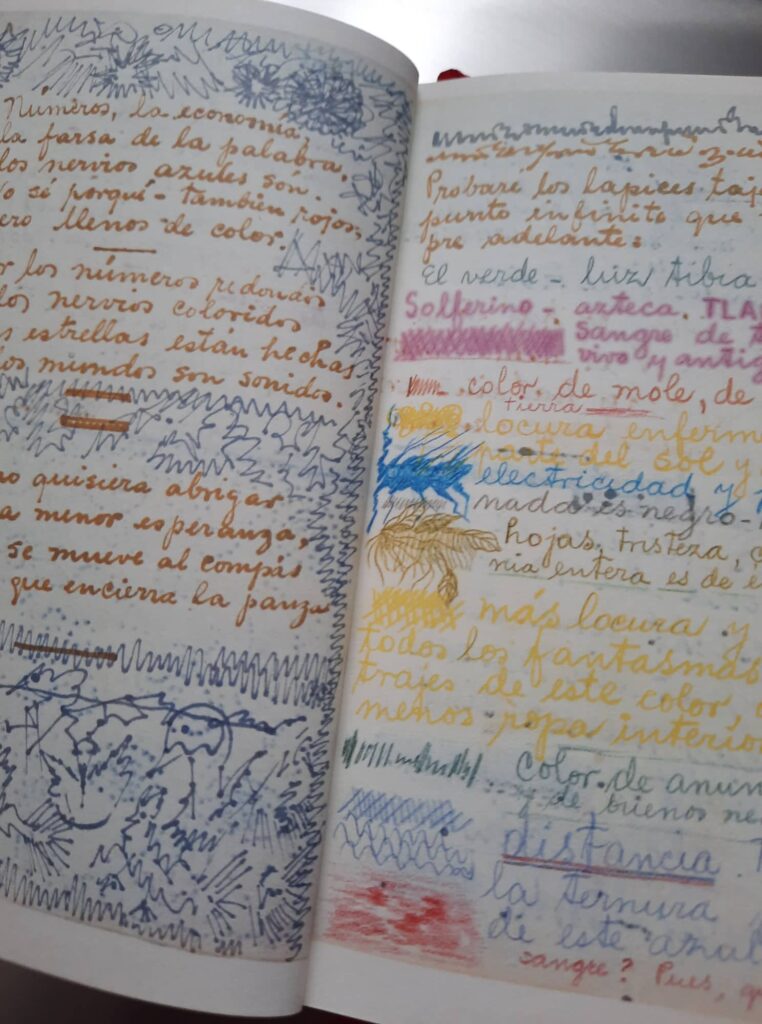 Números, la economía,
la farsa de la palabra,
los nervios azules son.
No sé porqué - también rojos,
ero llenos de color.
r los números redondos
los nervios coloridos
s estrellas están hechas
los mundos son sonidos.
no quisiera abrigar
a menor esperanza,
se mueve al compás
que encierra la panza
Probare los lapices taj
punto infinito que
pre adelante:
El verde - luz tibia
Solferino - azteca. TLA
Sangre de t
vivo y antig
color de mole, de
tierra
locura enferm
parte del sol y
electricidad y
nada es negro -
hojas, tristeza, c
nia entera es de e
más locura y
todos los fantasmas
trajes de este color,
menos ropa interior
color de anun
y de buenos ne
distancia. T
la ternura
de este azul
sangre? Pues, q